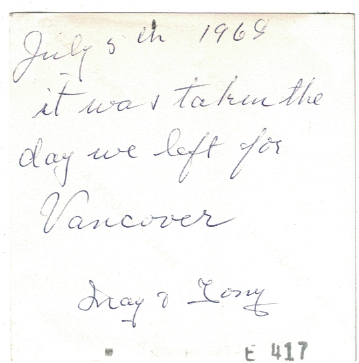 July 5th 1968
it was taken the
day we left for
Vancover
May & Tony
E 417